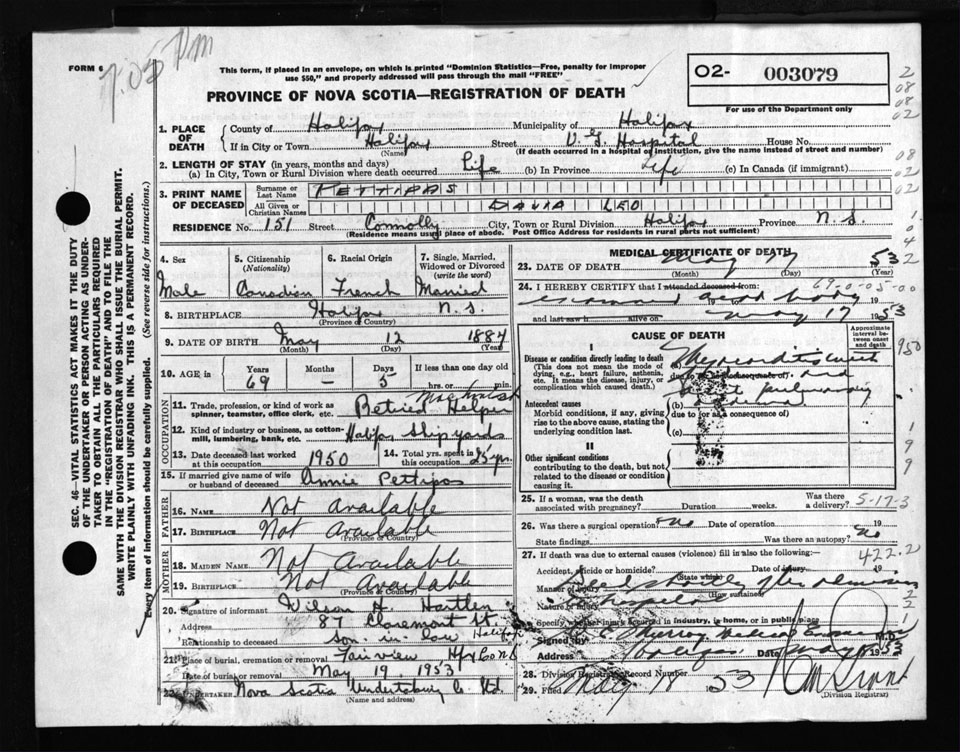 7.05 PM
FORM 6
This form, if placed in an envelope, on which is printed "Dominion Statistics—Free, penalty for improper
use $50," and properly addressed will pass through the mail "FREE"
02- 003079
For use of the Department only
PROVINCE OF NOVA SCOTIA—REGISTRATION OF DEATH
1. PLACE OF DEATH
County of Halifax Municipality of Halifax
If in City or Town Halifax Street V. G. Hospital House No.
(Name) (If death occurred in a hospital or institution, give the name instead of street and number)
2. LENGTH OF STAY (in years, months and days)
(a) In City, Town or Rural Division where death occurred Life (b) In Province Life (c) In Canada (if immigrant)
3. PRINT NAME OF DECEASED
Surname or Last Name PETTIPAS
All Given or Christian Names DAVID LEO
RESIDENCE No. 151 Street Connolly City, Town or Rural Division Halifax Province N. S.
(Residence means usual place of abode. Post Office Address for residents in rural parts not sufficient)
4. Sex Male
5. Citizenship (Nationality) Canadian
6. Racial Origin French
7. Single, Married, Widowed or Divorced (write the word) Married
8. BIRTHPLACE Halifax N. S.
(Province or Country)
9. DATE OF BIRTH May 12 1884
(Month) (Day) (Year)
10. AGE in Years 69 Months — Days 5 If less than one day old hrs. or min.
OCCUPATION
11. Trade, profession, or kind of work as spinner, teamster, office clerk, etc. Retired Machinist Helper
12. Kind of industry or business, as cotton-mill, lumbering, bank, etc. Halifax Shipyards
13. Date deceased last worked at this occupation 1950
14. Total yrs. spent in this occupation 25 yrs.
15. If married give name of wife or husband of deceased Annie Pettipas
FATHER
16. Name Not Available
17. Birthplace Not Available
(Province or Country)
MOTHER
18. MAIDEN NAME Not Available
19. BIRTHPLACE Not Available
(Province or Country)
20. Signature of informant Wilson A. Hartlen
Address 87 Claremont St. Halifax
Relationship to deceased Son in law
21. Place of burial, cremation or removal Fairview Hfx Co N S
Date of burial or removal May 19 1953
22. UNDERTAKER Nova Scotia Undertaking Co Ltd.
(Name and address)
MEDICAL CERTIFICATE OF DEATH
23. DATE OF DEATH May 17 53
(Month) (Day) (Year)
24. I HEREBY CERTIFY that I attended deceased from:
examined dead body 19
and last saw alive on May 17 1953
CAUSE OF DEATH
Approximate interval between onset and death
I
Disease or condition directly leading to death
(This does not mean the mode of dying, e.g., heart failure, asthenia, etc. It means the disease, injury, or complication which caused death.)
(a) Myocarditis
due to (or as a consequence of)
Antecedent causes
Morbid conditions, if any, giving rise to the above cause, stating the underlying condition last.
(b)
due to (or as a consequence of)
(c)
II
Other significant conditions
contributing to the death, but not related to the disease or condition causing it.
25. If a woman, was the death associated with pregnancy? Duration weeks. Was there a delivery? 5-17-3
26. Was there a surgical operation? no Date of operation 19
State findings Was there an autopsy? no
422.2
27. If death was due to external causes (violence) fill in also the following:—
Accident, suicide or homicide? Date of injury 19
(State which)
Manner of injury Died shortly after admission
(How sustained)
Nature of injury to hospital
Specify whether injury occurred in industry, in home, or in public place
Signed by C Murray Medical Examiner M.D.
Address Halifax Date May 1953
28. Division Registrar's Record Number
29. Filed May 18 53
(Division Registrar)
SEC. 46—VITAL STATISTICS ACT MAKES IT THE DUTY
OF THE UNDERTAKER OR PERSON ACTING AS UNDER-
TAKER TO OBTAIN ALL THE PARTICULARS REQUIRED
IN THE "REGISTRATION OF DEATH" AND TO FILE THE
SAME WITH THE DIVISION REGISTRAR WHO SHALL ISSUE THE BURIAL PERMIT.
WRITE PLAINLY WITH UNFADING INK. THIS IS A PERMANENT RECORD.
Every item of information should be carefully supplied. (See reverse side for instructions.)